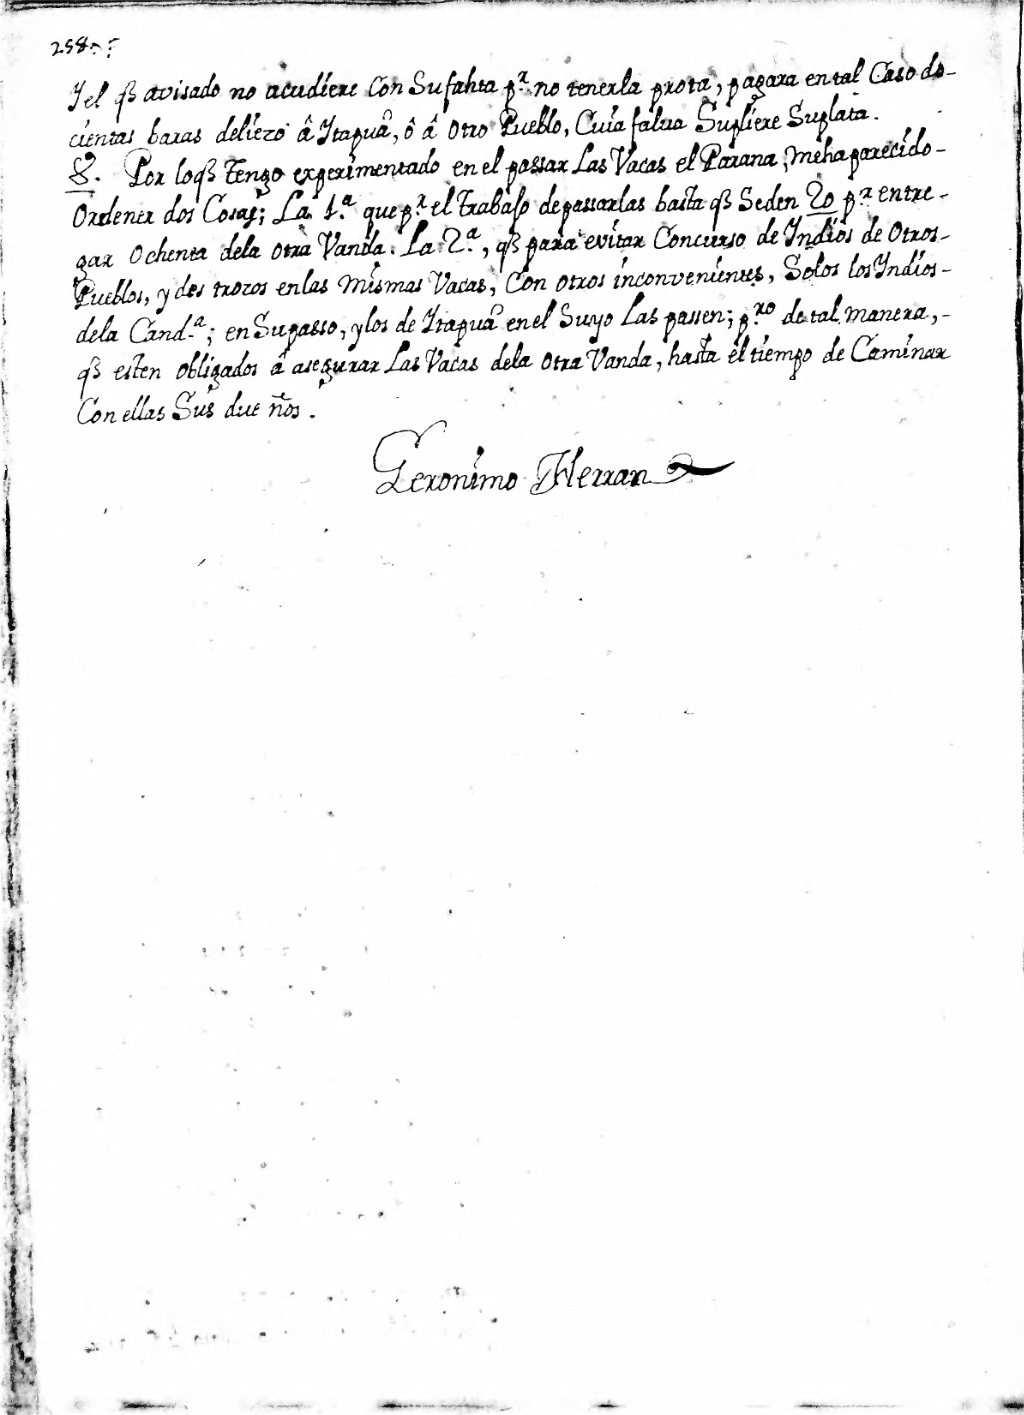 258
Y el qȝ avisado no acudiere con su falua p.ʳ no tenerla prota, pagara en tal Caso do-
cientas baras de liezo â Itapuâ, ô â otro Pueblo, Cuia falua Supliere Suplata.
8. Por loqȝ tengo experimentado en el passar Las Vacas el Parana, meha parecido-
Ordener dos Cosas; La 1.ª que p.ʳ el trabajo de passarlas basta qȝ Seden 20 p.ª entre-
gar Ochenta dela otra Vanda. La 2.ª, qȝ para evitar Concurso de Indios de Otros-
Pueblos, y destrozos enlas mismas Vacas, Con otros inconvenientes, Solos los Indios-
dela Cand.ª; en Supasso, ylos de Itapuâ en el Suyo Las passen; p.ʳᵒ de tal manera,-
qȝ esten obligados â asegurar Las Vacas dela otra Vanda, hasta el tiempo de Caminar
Con ellas Sus dueños.
Geronimo Herran